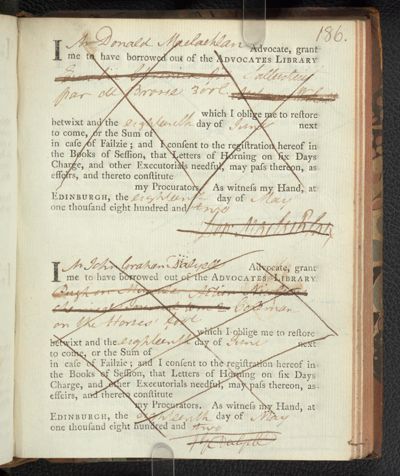 186.
I Mr Donald Maclachlan Advocate, grant
me to have borrowed out of the ADVOCATES LIBRARY
par de Brosse 3 vol
which I oblige me to restore
betwixt and the eighteenth day of June next
to come, or the Sum of
in case of Failzie; and I consent to the registration hereof in
the Books of Session, that Letters of Horning on six Days
Charge, and other Executorials needful, may pass thereon, as
effeirs, and thereto constitute
my Procurators. As witness my Hand, at
EDINBURGH, the eighteenth day of May
one thousand eight hundred and two
Don. Maclachlan
I Mr John Graham Dalyell Advocate, grant
me to have borrowed out of the ADVOCATES LIBRARY
Coleman
on the Horses foot
which I oblige me to restore
betwixt and the eighteenth day of June next
to come, or the Sum of
in case of Failzie; and I consent to the registration hereof in
the Books of Session, that Letters of Horning on six Days
Charge, and other Executorials needful, may pass thereon, as
effeirs, and thereto constitute
my Procurators. As witness my Hand, at
EDINBURGH, the eighteenth day of May
one thousand eight hundred and two
JG Dalyell